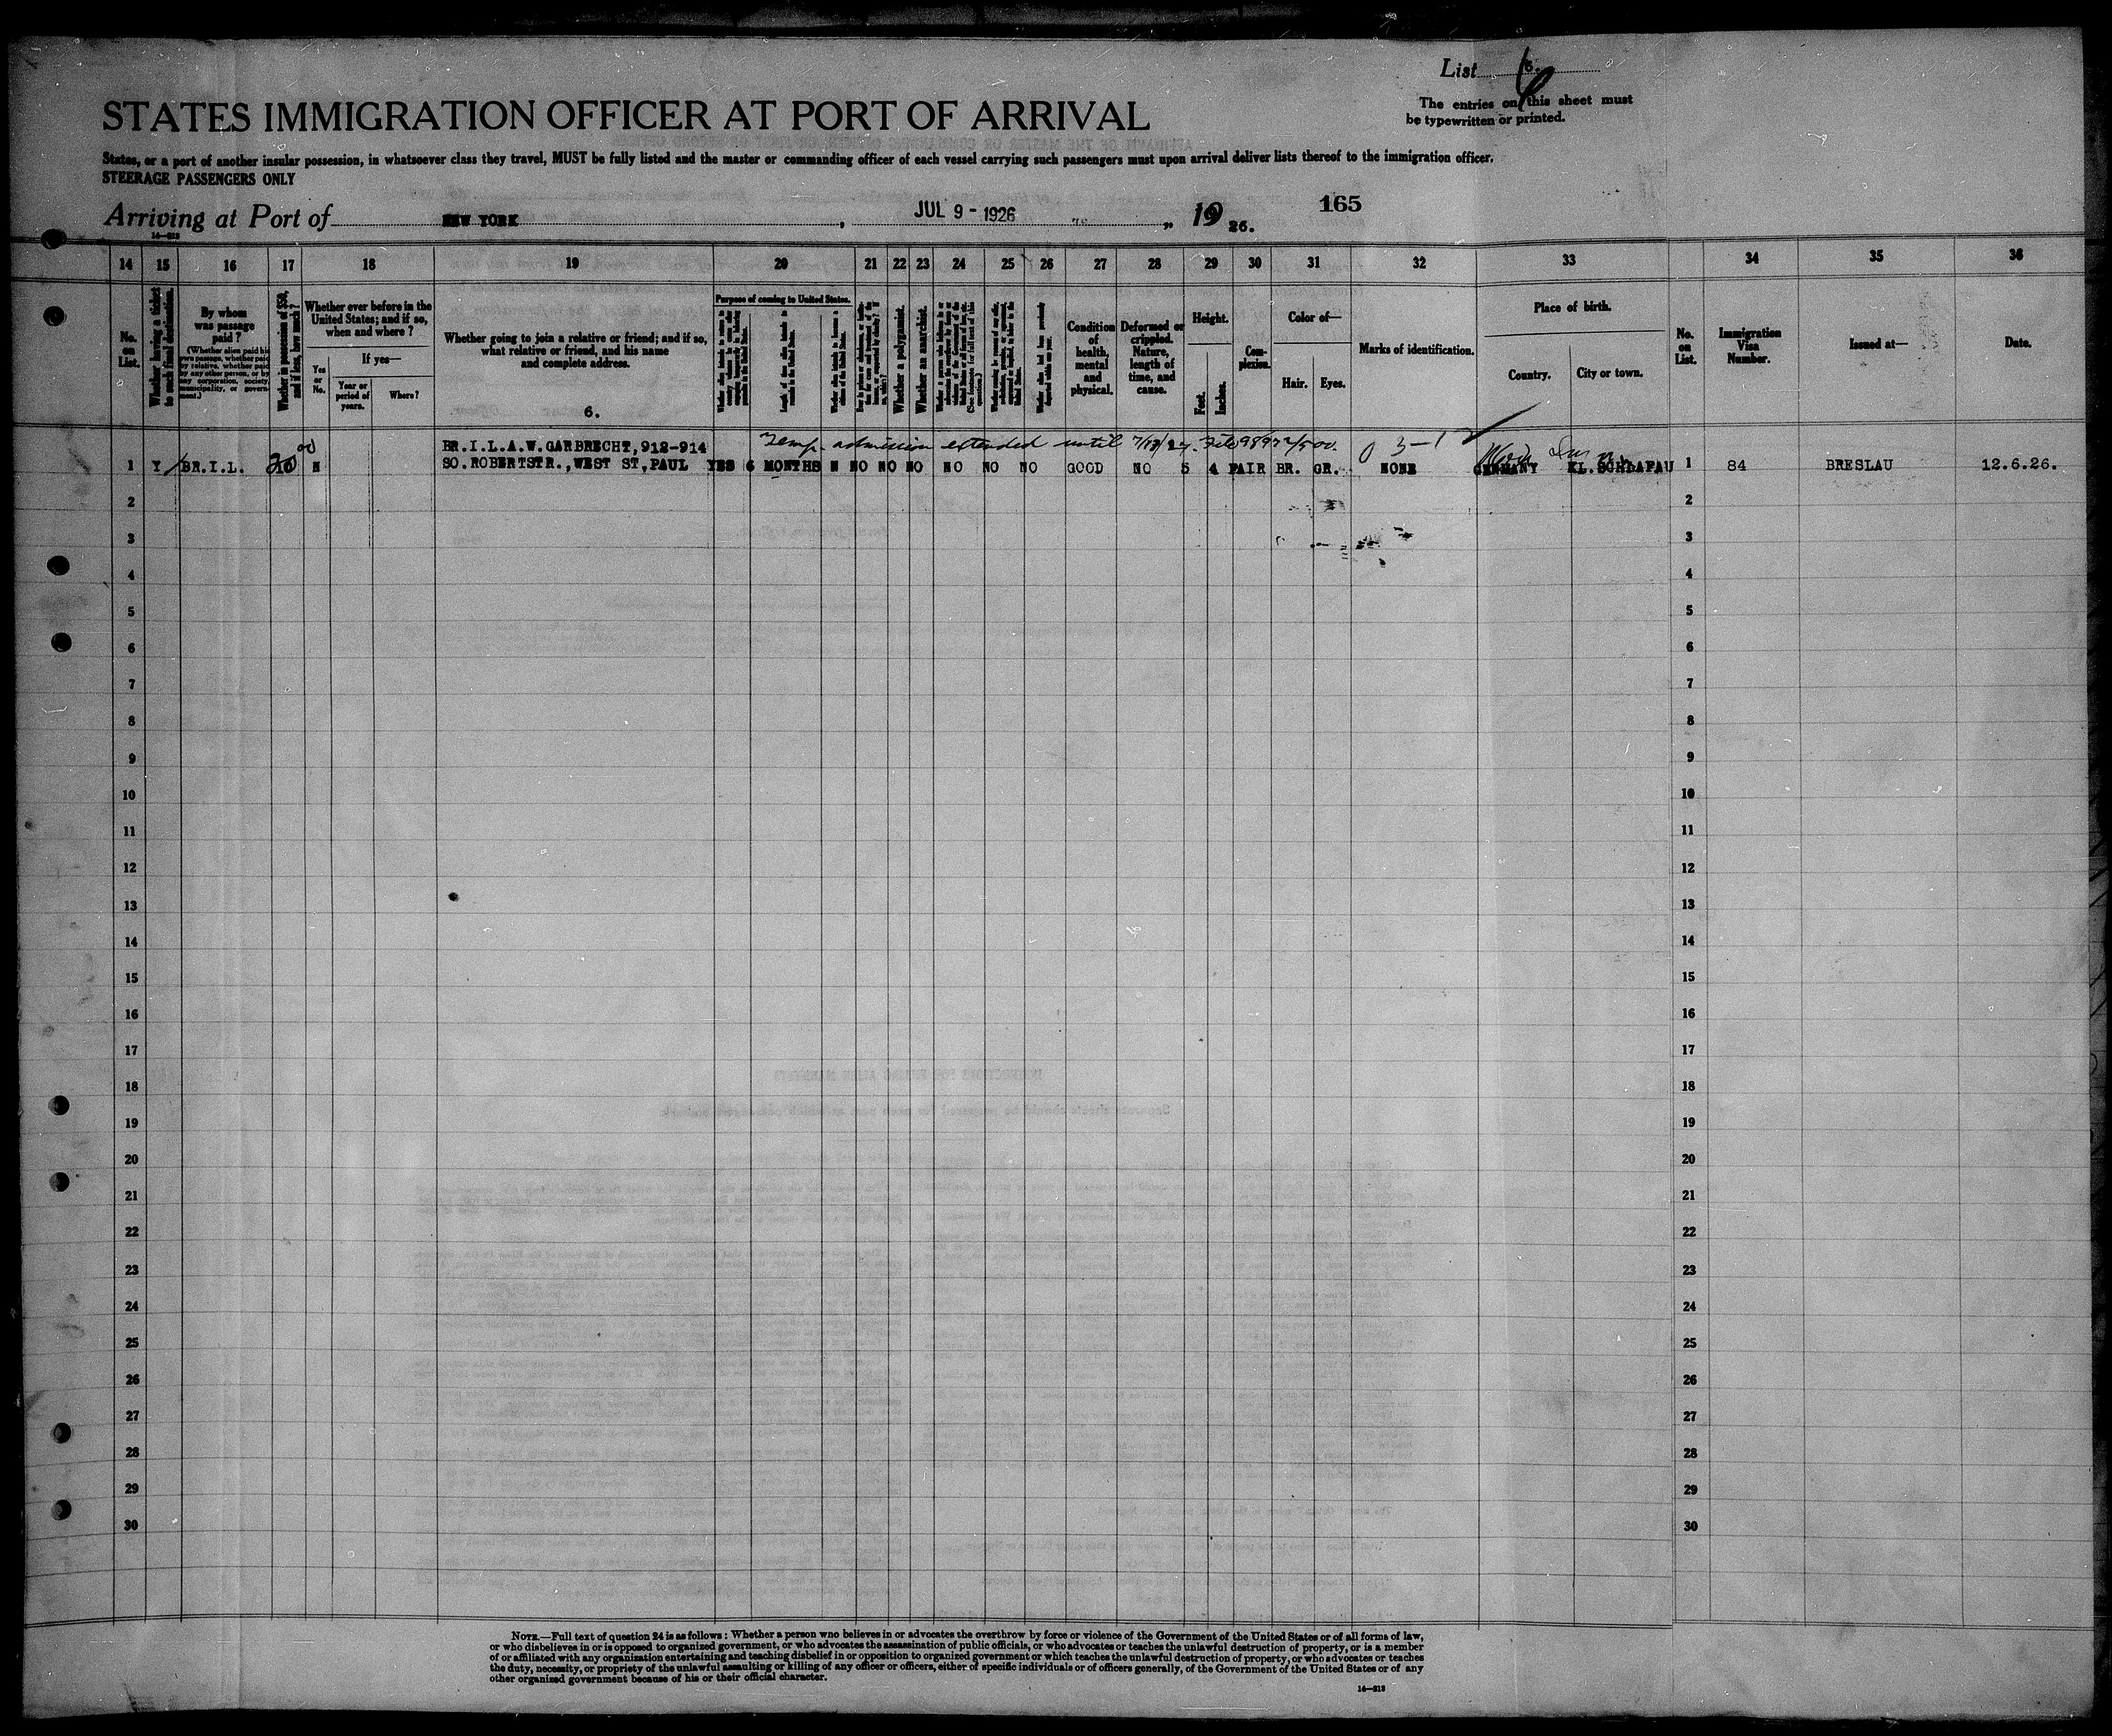 List 6.
The entries on this sheet must
be typewritten or printed.
STATES IMMIGRATION OFFICER AT PORT OF ARRIVAL
States, or a port of another insular possession, in whatsoever class they travel, MUST be fully listed and the master or commanding officer of each vessel carrying such passengers must upon arrival deliver lists thereof to the immigration officer.
STEERAGE PASSENGERS ONLY
Arriving at Port of NEW YORK, JUL 9 - 1926, 19 26. 165
14—213
14 15 16 17 18 19 20 21 22 23 24 25 26 27 28 29 30 31 32 33 34 35 36
No. on List.
Whether having a ticket to such final destination.
By whom was passage paid?
(Whether alien paid his own passage, whether paid by relative, whether paid by any other person, or by any corporation, society, municipality, or government.)
Whether in possession of $50, and if less, how much?
Whether ever before in the United States; and if so, when and where?
Yes or No.
If yes—
Year or period of years.
Where?
Whether going to join a relative or friend; and if so, what relative or friend, and his name and complete address.
6.
Purpose of coming to United States.
Length of time alien intends to remain in the United States.
Whether alien intends to become a citizen of the United States.
Whether a polygamist.
Whether an anarchist.
Condition of health, mental and physical.
Deformed or crippled. Nature, length of time, and cause.
Height.
Feet.
Inches.
Complexion.
Color of—
Hair.
Eyes.
Marks of identification.
Place of birth.
Country.
City or town.
No. on List.
Immigration Visa Number.
Issued at—
Date.
BR.I.L.A.W.GARBRECHT,912-914 Temp. admission extended until
1 Y BR.I.L. N SO.ROBERTSTR.,WEST ST,PAUL YES 6 MONTHS N NO NO NO NO NO NO GOOD NO 5 4 FAIR BR. GR. NONE GERMANY 1 84 BRESLAU 12.6.26.
2 2
3 3
4 4
5 5
6 6
7 7
8 8
9 9
10 10
11 11
12 12
13 13
14 14
15 15
16 16
17 17
18 18
19 19
20 20
21 21
22 22
23 23
24 24
25 25
26 26
27 27
28 28
29 29
30 30
NOTE.—Full text of question 24 is as follows: Whether a person who believes in or advocates the overthrow by force or violence of the Government of the United States or of all forms of law,
or who disbelieves in or is opposed to organized government, or who advocates the assassination of public officials, or who advocates or teaches the unlawful destruction of property, or is a member
of or affiliated with any organization entertaining and teaching disbelief in or opposition to organized government or which teaches the unlawful destruction of property, or who advocates or teaches
the duty, necessity, or propriety of the unlawful assaulting or killing of any officer or officers, either of specific individuals or of officers generally, of the Government of the United States or of any
other organized government because of his or their official character.
14—213